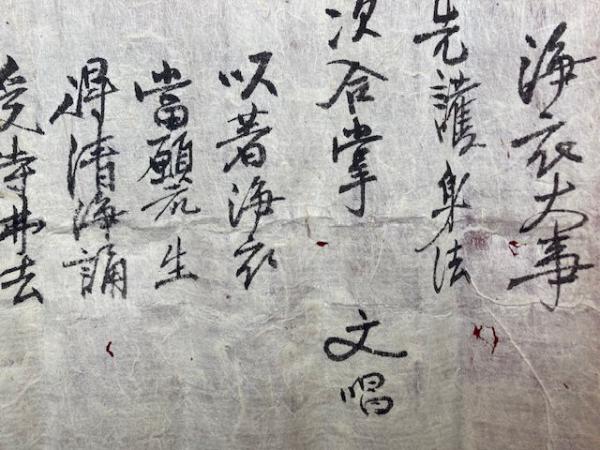 浄衣大事
先護身法
次合掌　文唱
以著浄衣
當願衆生
得清浄誦
受持佛法